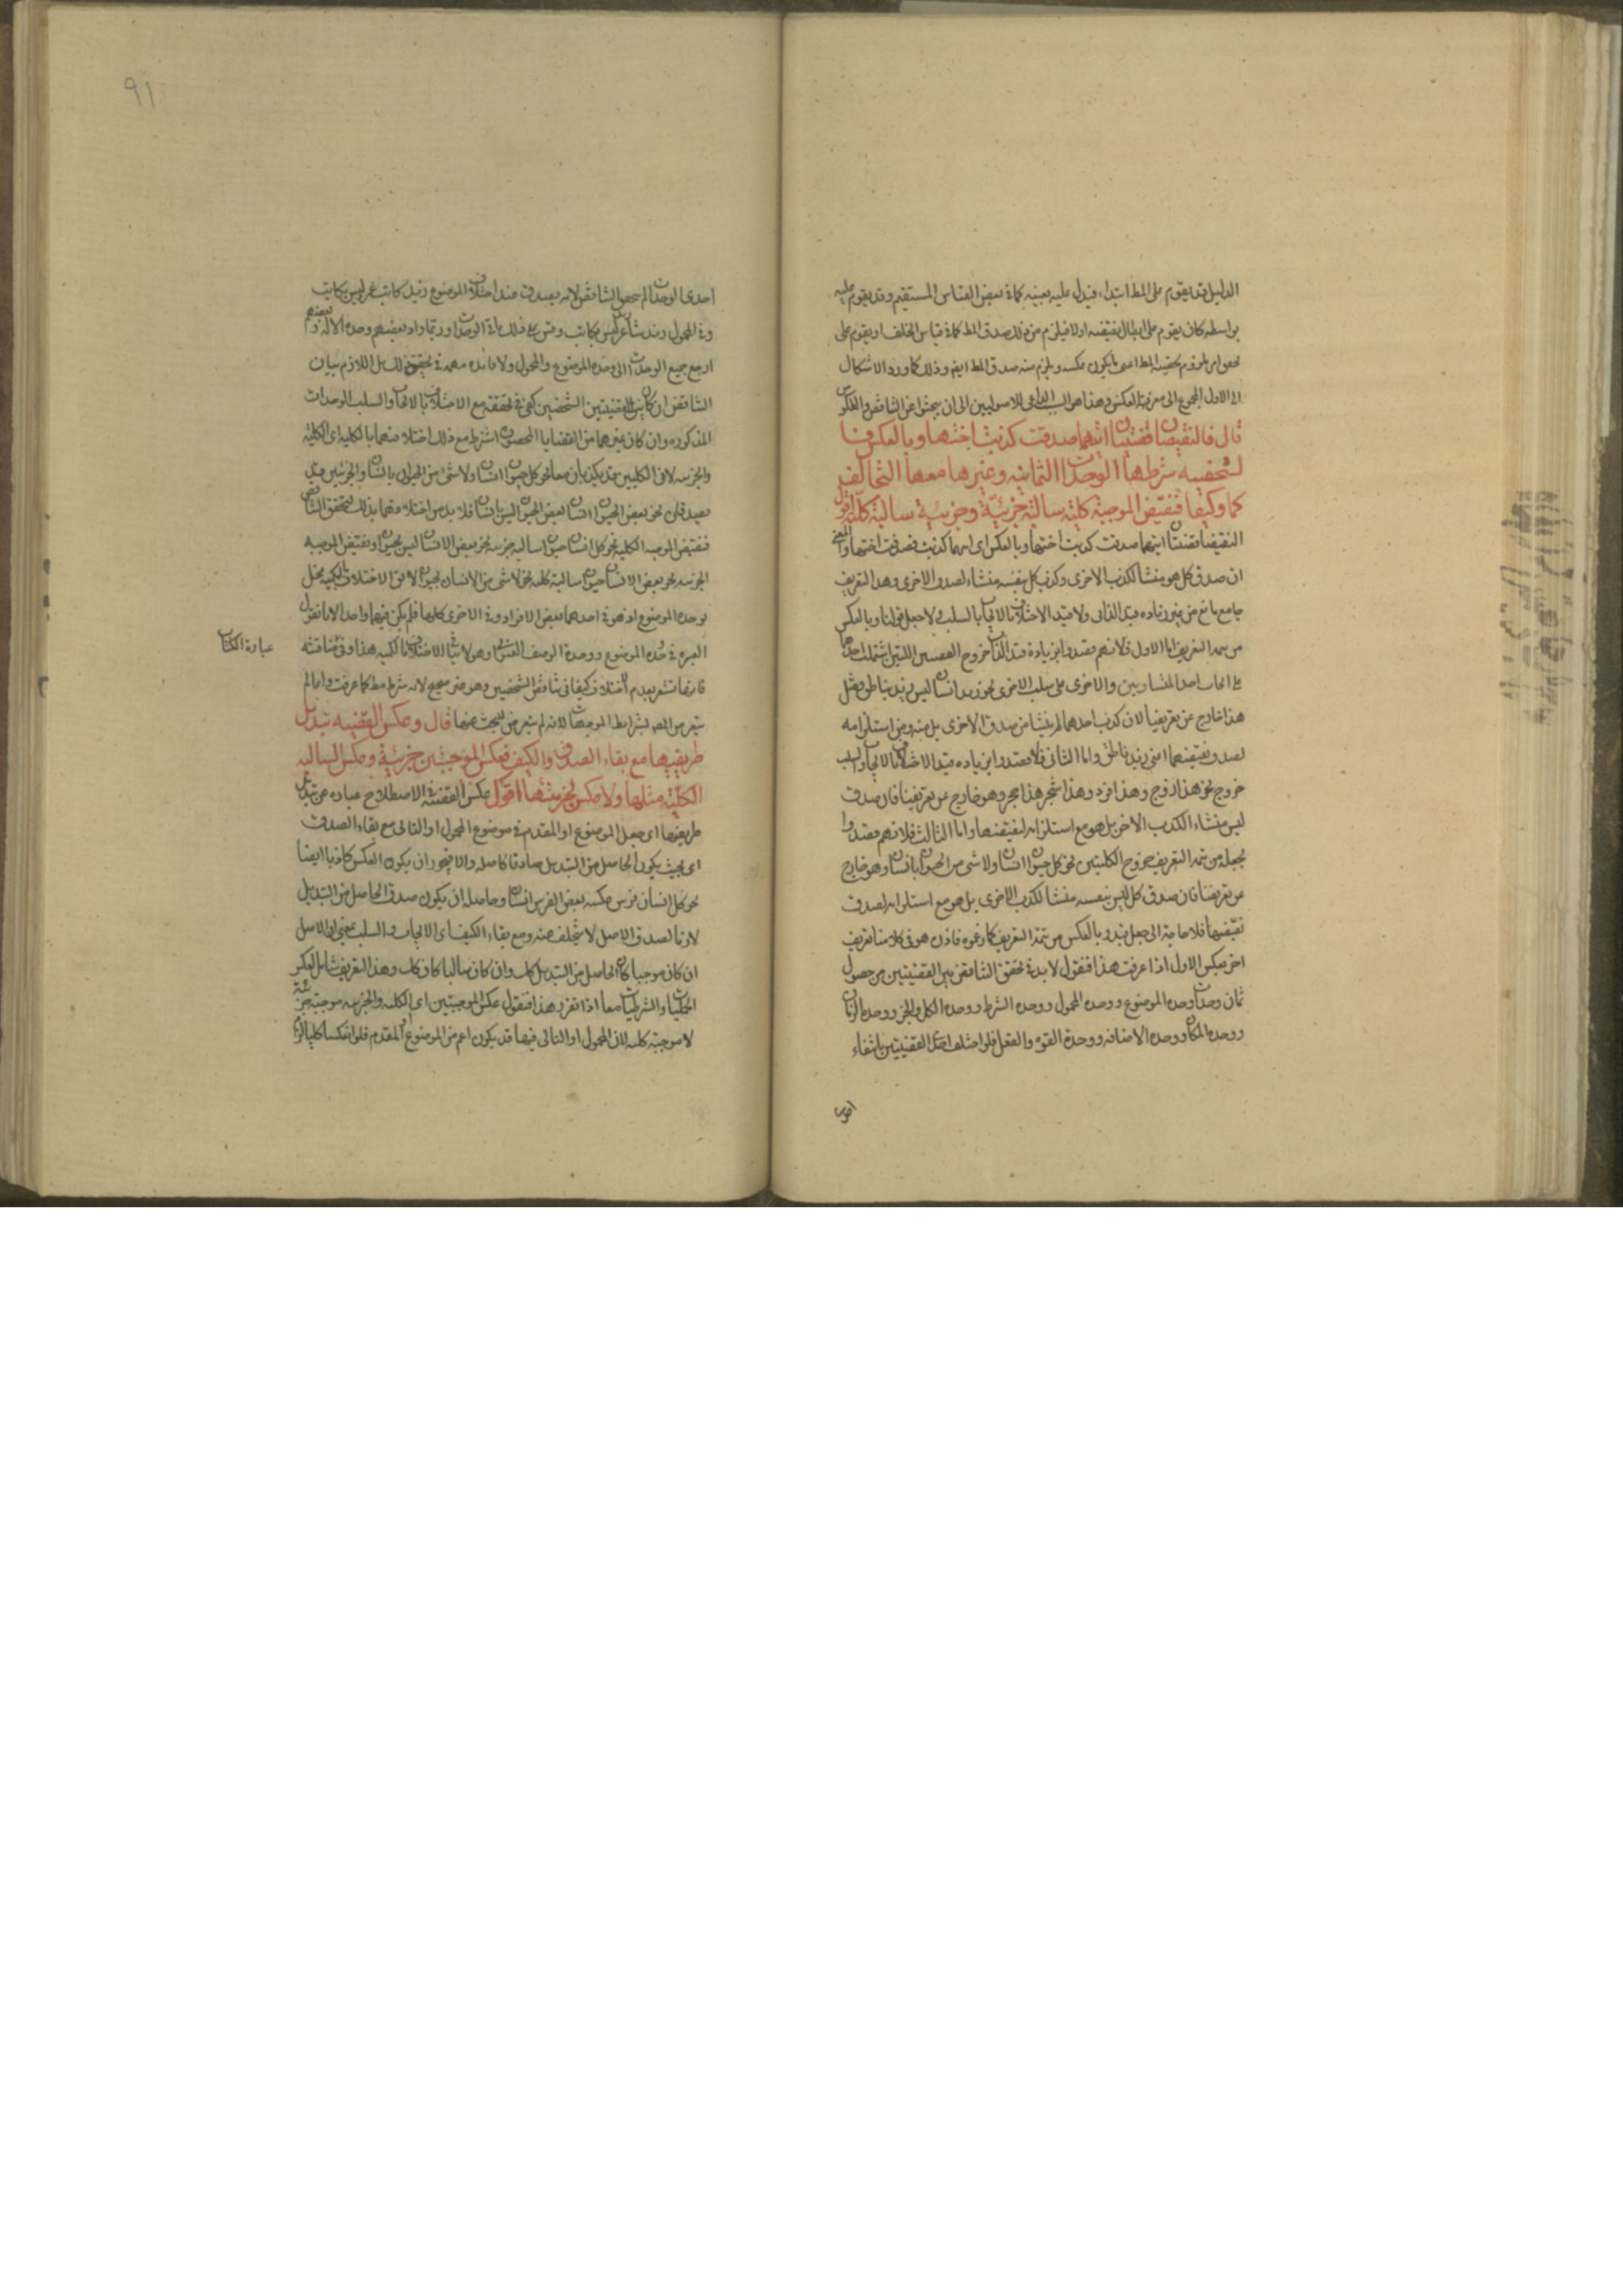 الدليل قد يقوم على المط ابتداء فيدل عليه بعينه كما في بعض القياس المستقيم وقد يقوم عليه
بواسطة كان يقوم على ابطال نقيضه اولا فيلزم من ذلك صدق المط كما في قياس الخلف او يقوم على
المط اعنى ما يكون عكسه ويلزم منه صدق المط ايضا وذلك كما ورد الاشكال
الى الاول المحوج الى معرفة العكس وهذا هو السبب الداعى للاصوليين الى ان يبحثوا عن التناقض والعكوس
قال فالنقيضان قضيتان ايتهما صدقت كذبت اختها وبالعكس فا
لشخصيه شرطها الوحدات الثمانيه وغيرها معها التخالف
كما وكيفا فنقيض الموجبة كلية سالبة جزئية وجزئية سالبة كلية اقول
النقيضان قضيتان ايتهما صدقت كذبت اختها وبالعكس اى ايهما كذبت صدقت اختها والمعنى
ان صدق كل هو منشا لكذب الاخرى وكذب كل بنفسه منشاء لصدق الاخرى وهذا التعريف
جامع مانع من غير زياده قيد الذاتى ولا قيد الاختلاف بالايجاب بالسلب ولا جعل قولنا وبالعكس
من تتمه التعريف اما الاول فلانهم قصدوا بزيادة قيد الذاتى خروج القضيتين اللتين اشتملت احدهما
على ايجاب احد المتساويين والاخرى على سلب الاخرى نحو زيد انسان ليس زيد بناطق ومثل
هذا خارج عن تعريفنا لان كذب احدهما لم ينشا من صدق الاخرى بل منه ومن استلزامه
لصدق نقيضهما اعنى زيد ناطق واما الثانى فلا قصدوا بزياده قيد الاختلاف بالايجاب والسلب
خروج نحو هذا زوج وهذا فرد وهذا شجر هذا حجر وهو خارج عن تعريفنا فان صدق
ليس منشاء لكذب الاخر بل هو مع استلزامه لنقيضها واما الثالث فلانهم قصدوا
بجعله من تتمه التعريف خروج الكليتين نحو كل حيوان انسان ولا شى من الحيوان بانسان وهو خارج
عن تعريفنا فان صدق كل ليس بنفسه منشا لكذب الاخرى بل هو مع استلزامه لصدق
نقيضها فلا حاجة الى جعل قيد وبالعكس من تتمة التعريف كما زعموه فاذن هو فى كلامنا تعريف
اخر بعكس الاول اذا عرفت هذا فنقول لا بد فى تحقق التناقض بين القضيتين من حصول
ثمان وحدات وحده الموضوع ووحده المحمول ووحده الشرط ووحده الكل والجزء ووحده الزمان
ووحده المكان ووحده الاضافه ووحدة القوه والفعل فلو اختلف احدى القضيتين بانتفاء
احدى
٩١
احدى الوحدات لم يتحقق التناقض لانه يصدق عند اختلاف الموضوع زيد كاتب عمر ليس بكاتب
وفى المحمول زيد شاعر ليس بكاتب وقس على ذلك باقى الوحدات وربما زاد بعضهم وحده الاله وبعضهم
ارجع جميع الوحدات الى وحده الموضوع والمحمول ولا فائده مهمه فى تحقيق ذلك بل اللازم بيان
التناقض ان كان بين القضيتين الشخصيتين كفى فى تحققه مع الاختلاف بالايجاب والسلب الوحدات
المذكوره وان كان غيرهما من القضايا المحصوره اشترط مع ذلك اختلافهما بالكليه اى الكلية
والجزئيه لان الكليتين قد يكذبان معا نحو كل حيوان انسان ولا شى من الحيوان بانسان والجزئيتين قد
يصدقان نحو بعض الحيوان انسان بعض الحيوان ليس بانسان فلا بد من اختلافهما بذلك ليتحقق التناقض
فنقيض الموجبه الكليه نحو كل انسان حيوان سالبه جزئيه نحو بعض الانسان ليس بحيوان ونقيض الموجبه
الجزئيه نحو بعض الانسان حيوان سالبة كليه نحو لا شى من الانسان بحيوان لا يق الاختلاف بالكميه يخل
بوحده الموضوع اذ هو فى احدهما بعض الافراد وفى الاخرى كلها فلم يكن فيهما واحدا لانا نقول
العبره فى وحده الموضوع ووحدة الوصف العنوانى وهو لا ينافى الاختلاف بالكميه هذا وفى مناقشه
عبارة الكتاب
فانها تشعر بعدم اختلاف كيفا فى تناقض الشخصيتين وهو غير صحيح لانه شرط مط كما عرفت وانما لم
يتعرض المصر لشرايط الموجهات لانه لم يتعرض للبحث عنها قال وعكس القضيه تبديل
طرفيها مع بقاء الصدق والكيف فعكس الموجبتين جزئية وعكس السالبه
الكلية مثلها ولا عكس لجزئيتها اقول عكس القضية فى الاصطلاح عباره عن تبديل
طرفيها اى جعل الموضوع او المقدم فى موضوع المحمول او التالى مع بقاء الصدق
اى بحيث يكون الحاصل من التبديل صادقا كاصله والا فيجوز ان يكون العكس كاذبا ايضا
نحو كل انسان فرس عكسه بعض الفرس انسان وحاصله ان يكون صدق الحاصل من التبديل
لازما لصدق الاصل لا يتخلف عنه ومع بقاء الكيف اى الايجاب والسلب بمعنى ان الاصل
ان كان موجبا كان الحاصل من التبديل كك وان كان سالبا كان كك وهذا التعريف شامل لعكس
الحمليات والشرطيات معا اذا تقرر هذا فنقول عكس الموجبتين اى الكليه والجزئيه موجبة جزئية
لا موجبة كليه لان المحمول او التالى فيها قد يكون اعم من الموضوع او المقدم فلو انعكسا كليا لزم